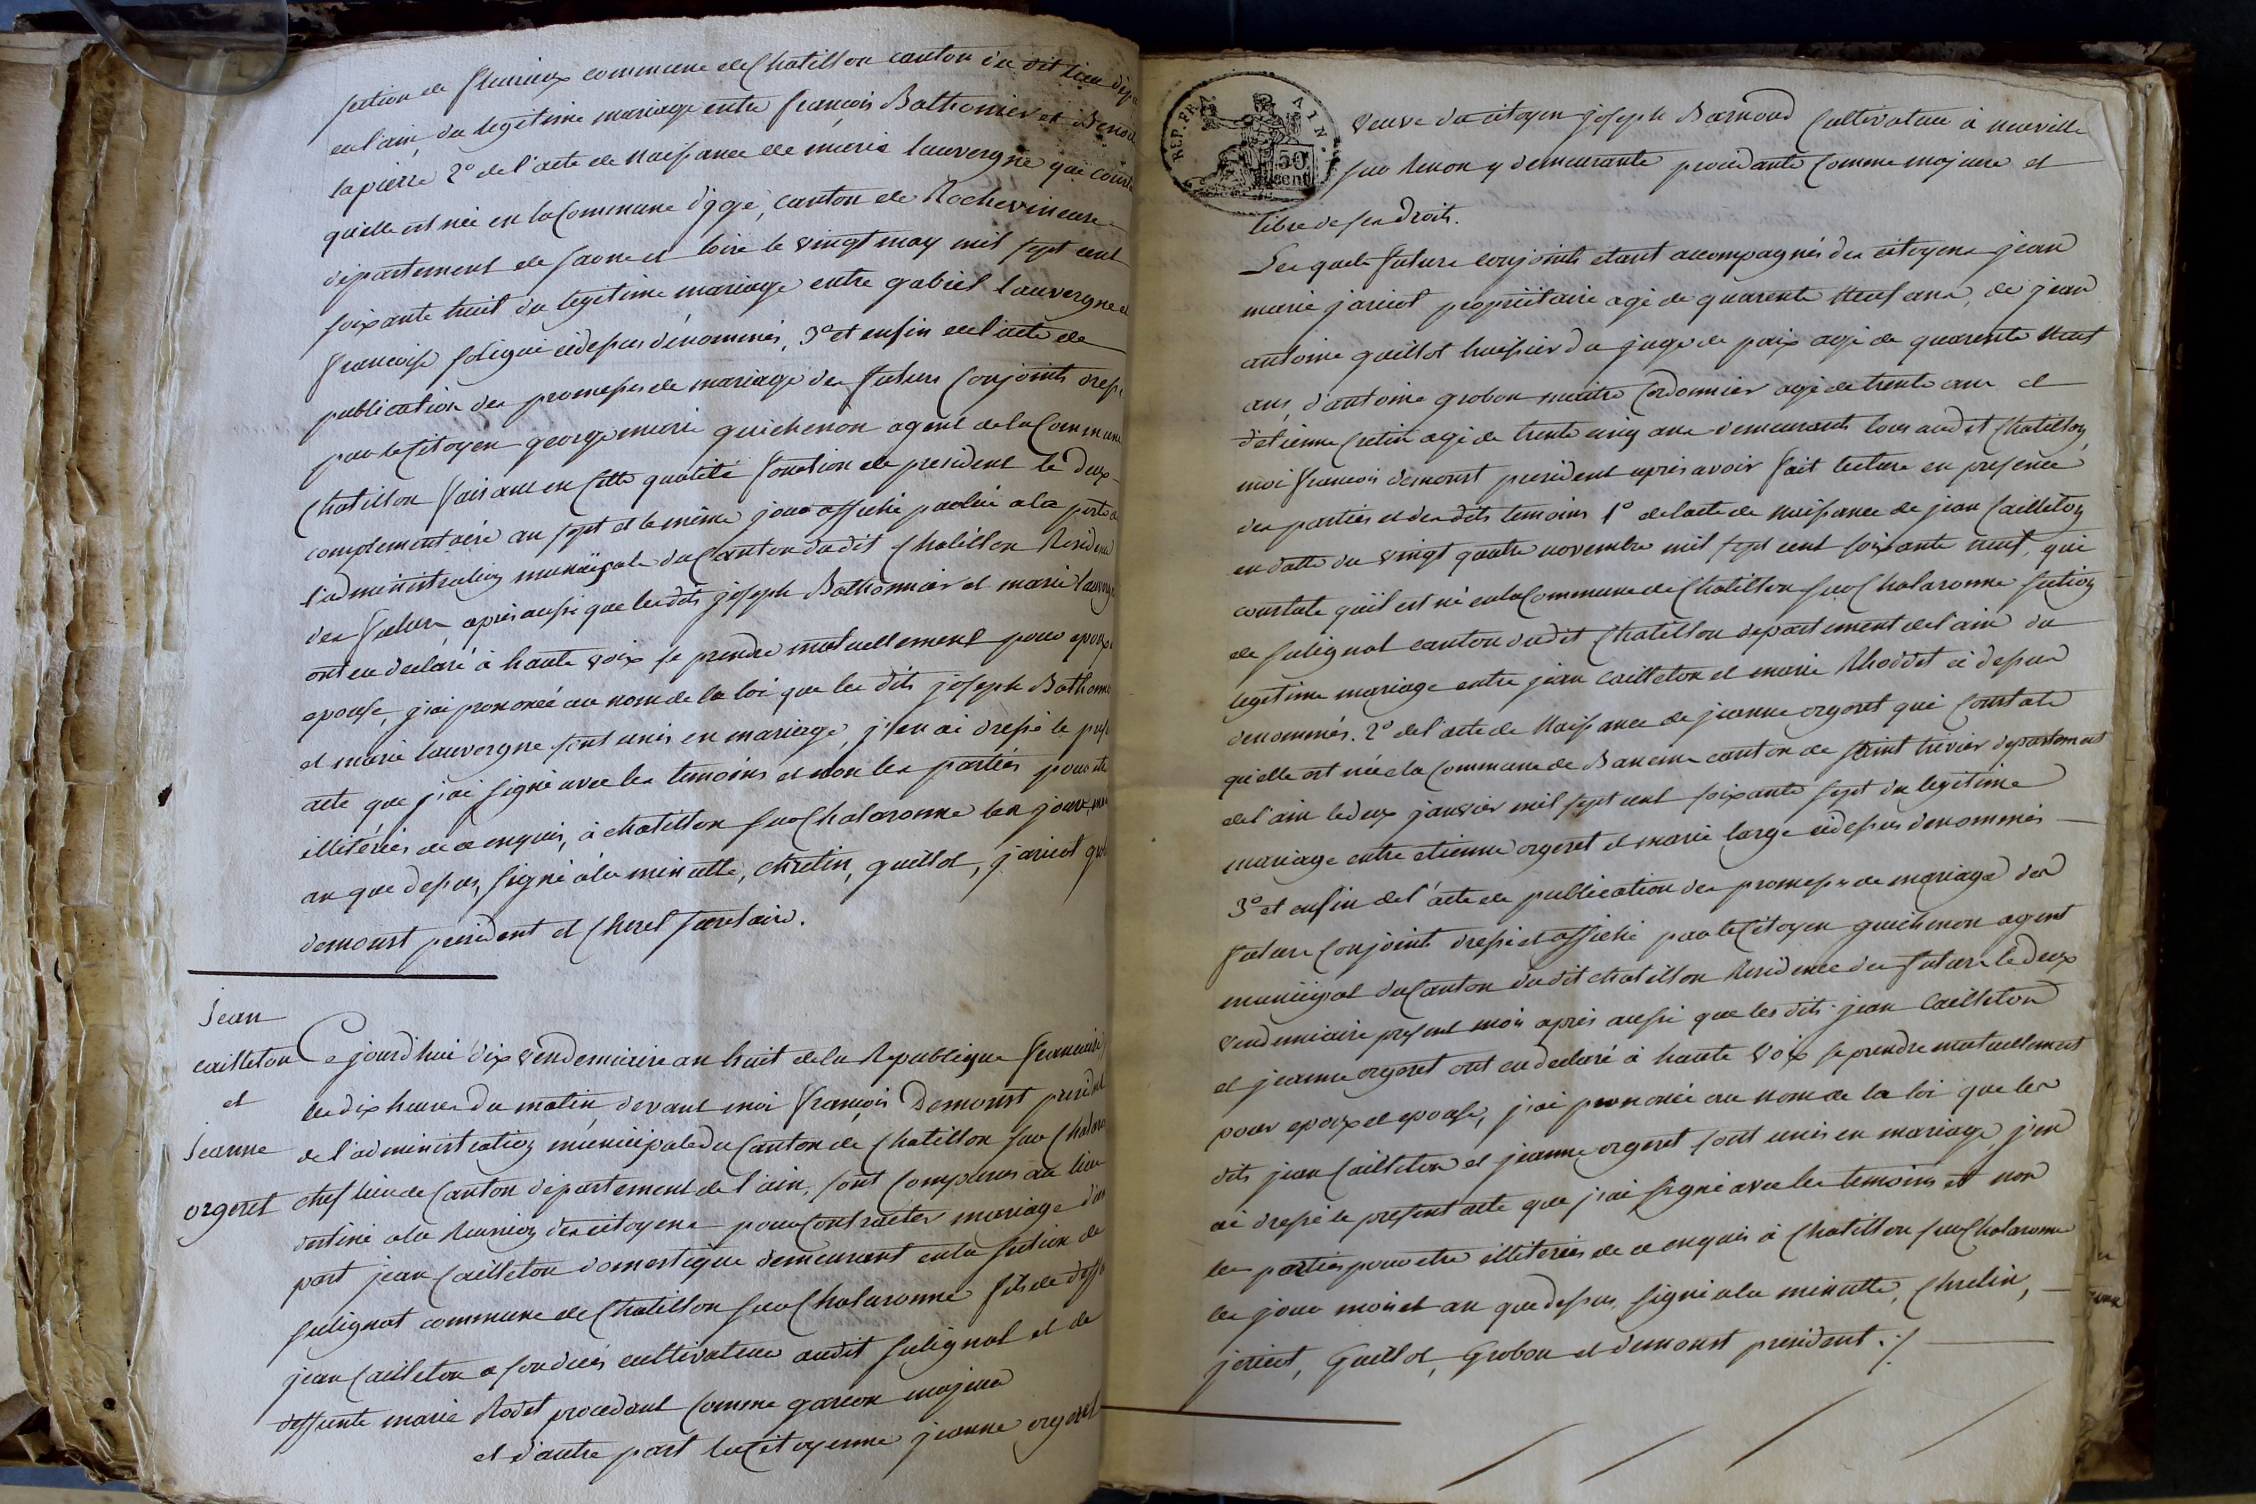 section de fleurieux commune de Chatillon canton du dit lieu dépa
de l'ain, du legitime mariage entre françois Bathonnier et Benoite
lapierre 2° de l'acte de naissance de marie lauvergne qui const
quelle est née en la Commune d'jgé, canton de Rochevineuse
département de saone et loire le vingt may mil sept cent
soixante huit du legitime mariage entre gabriel lauvergne et
francoise foligué cidessus dénommés, 3° et enfin de l'acte de
publication des promesses de mariage des futurs Conjoints dressé
par le Citoyen george marie guichenon agent de la Commune
Chatillon faisant en cette qualité fonction de president le deux
complementaire an sept et le même jour affiché publié a la porte de
l'administration municipale du Canton dudit Chatillon Residence
des futurs, après aussi que lesdits joseph Bathonnier et marie lauvergne
ont eu declaré à haute voix se prendre mutuellement pour epoux
epouse, j'ai prononcé au nom de la loi que les dits joseph Bathonni
et marie lauvergne sont unis en mariage, j'en ai dressé le pres
acte que j'ai signé avec les temoins et non les parties pour etre
illitérées de ce enquis, à chatillon sur Chalaronne les jour, mois
an que dessus, signé à la minutte, chretin, guillot, jaricot grob
demoust president et Cherel secretaire.
Jean
cailleton
et
Jeanne
orgeret
Ce jourd'hui dix vendemiaire an huit de la Republique francaise
les dix heures du matin devant moi françois Demoust president
de l'administration municipale du Canton de Chatillon sur Chalaro
chef lieu de Canton département de l'ain, sont comparus au lieu
destiné a la Reunion des citoyens pour Contracter mariage d'une
part jean Cailleton domestique demeurant en la section de
sulignat commune de Chatillon sur Chalaronne fils de deffu
jean Cailleton a son decés cultivateur audit sulignat et de
deffunte marie Rodet procedant Comme garcon majeur
et d'autre part la Citoyenne jeanne orgeret
REP. FRA. AIN.
50
cent
veuve du citoyen joseph Barnoud Cultivateur à neuville
sur Renon y demeurante procedante Comme majeure et
libre de ses droits.
Les quels futurs conjoints etant accompagnés des citoyens jean
marie jaricot propriétaire agé de quarente neuf ans, de jean
antoine guillot huissier du juge de paix agé de quarente neuf
ans, d'antoine grobon maitre Cordonnier agé de trente ans et
d'etienne Cretin agé de trente cinq ans demeurants tous audit Chatillon,
moi francois demoust president après avoir fait lecture en presence
des parties et des dits temoins 1° de l'acte de naissance de jean Cailleton
en datte du vingt quatre novembre mil sept cent soixante neuf, qui
constate qu'il est né en la Commune de Chatillon sur Chalaronne section
de sulignat canton dudit Chatillon departement de l'ain du
legitime mariage entre jean Cailleton et marie Rhoddet ci dessus
denommés. 2° de l'acte de naissance de jeanne orgeret qui Constate
qu'elle est née la commune de Baneins canton de saint trivier departement
de l'ain le deux janvier mil sept cent soixante sept du legitime
mariage entre etienne orgeret et marie large cidessus denommés
3° et enfin de l'acte de publication des promesses de mariage des
futurs Conjoints dressé et affiché par le Citoyen guichenon agent
municipal du Canton dudit chatillon Residence des futurs le deux
vendemiaire present mois après aussi que les dits jean Cailleton
et jeanne orgeret ont eu declaré à haute voix se prendre mutuellement
pour epoux et epouse, j'ai prononcé au nom de la loi que les
dits jean Cailleton et jeanne orgeret sont unis en mariage j'en
ai dressé le present acte que j'ai signé avec les temoins et non
les parties pour etre illiterées de ce enquis à Chatillon sur Chalaronne
les jour mois et an que dessus, signé a la minutte, Chretin,
jaricot, Guillot, Grobon et demoust president ./.